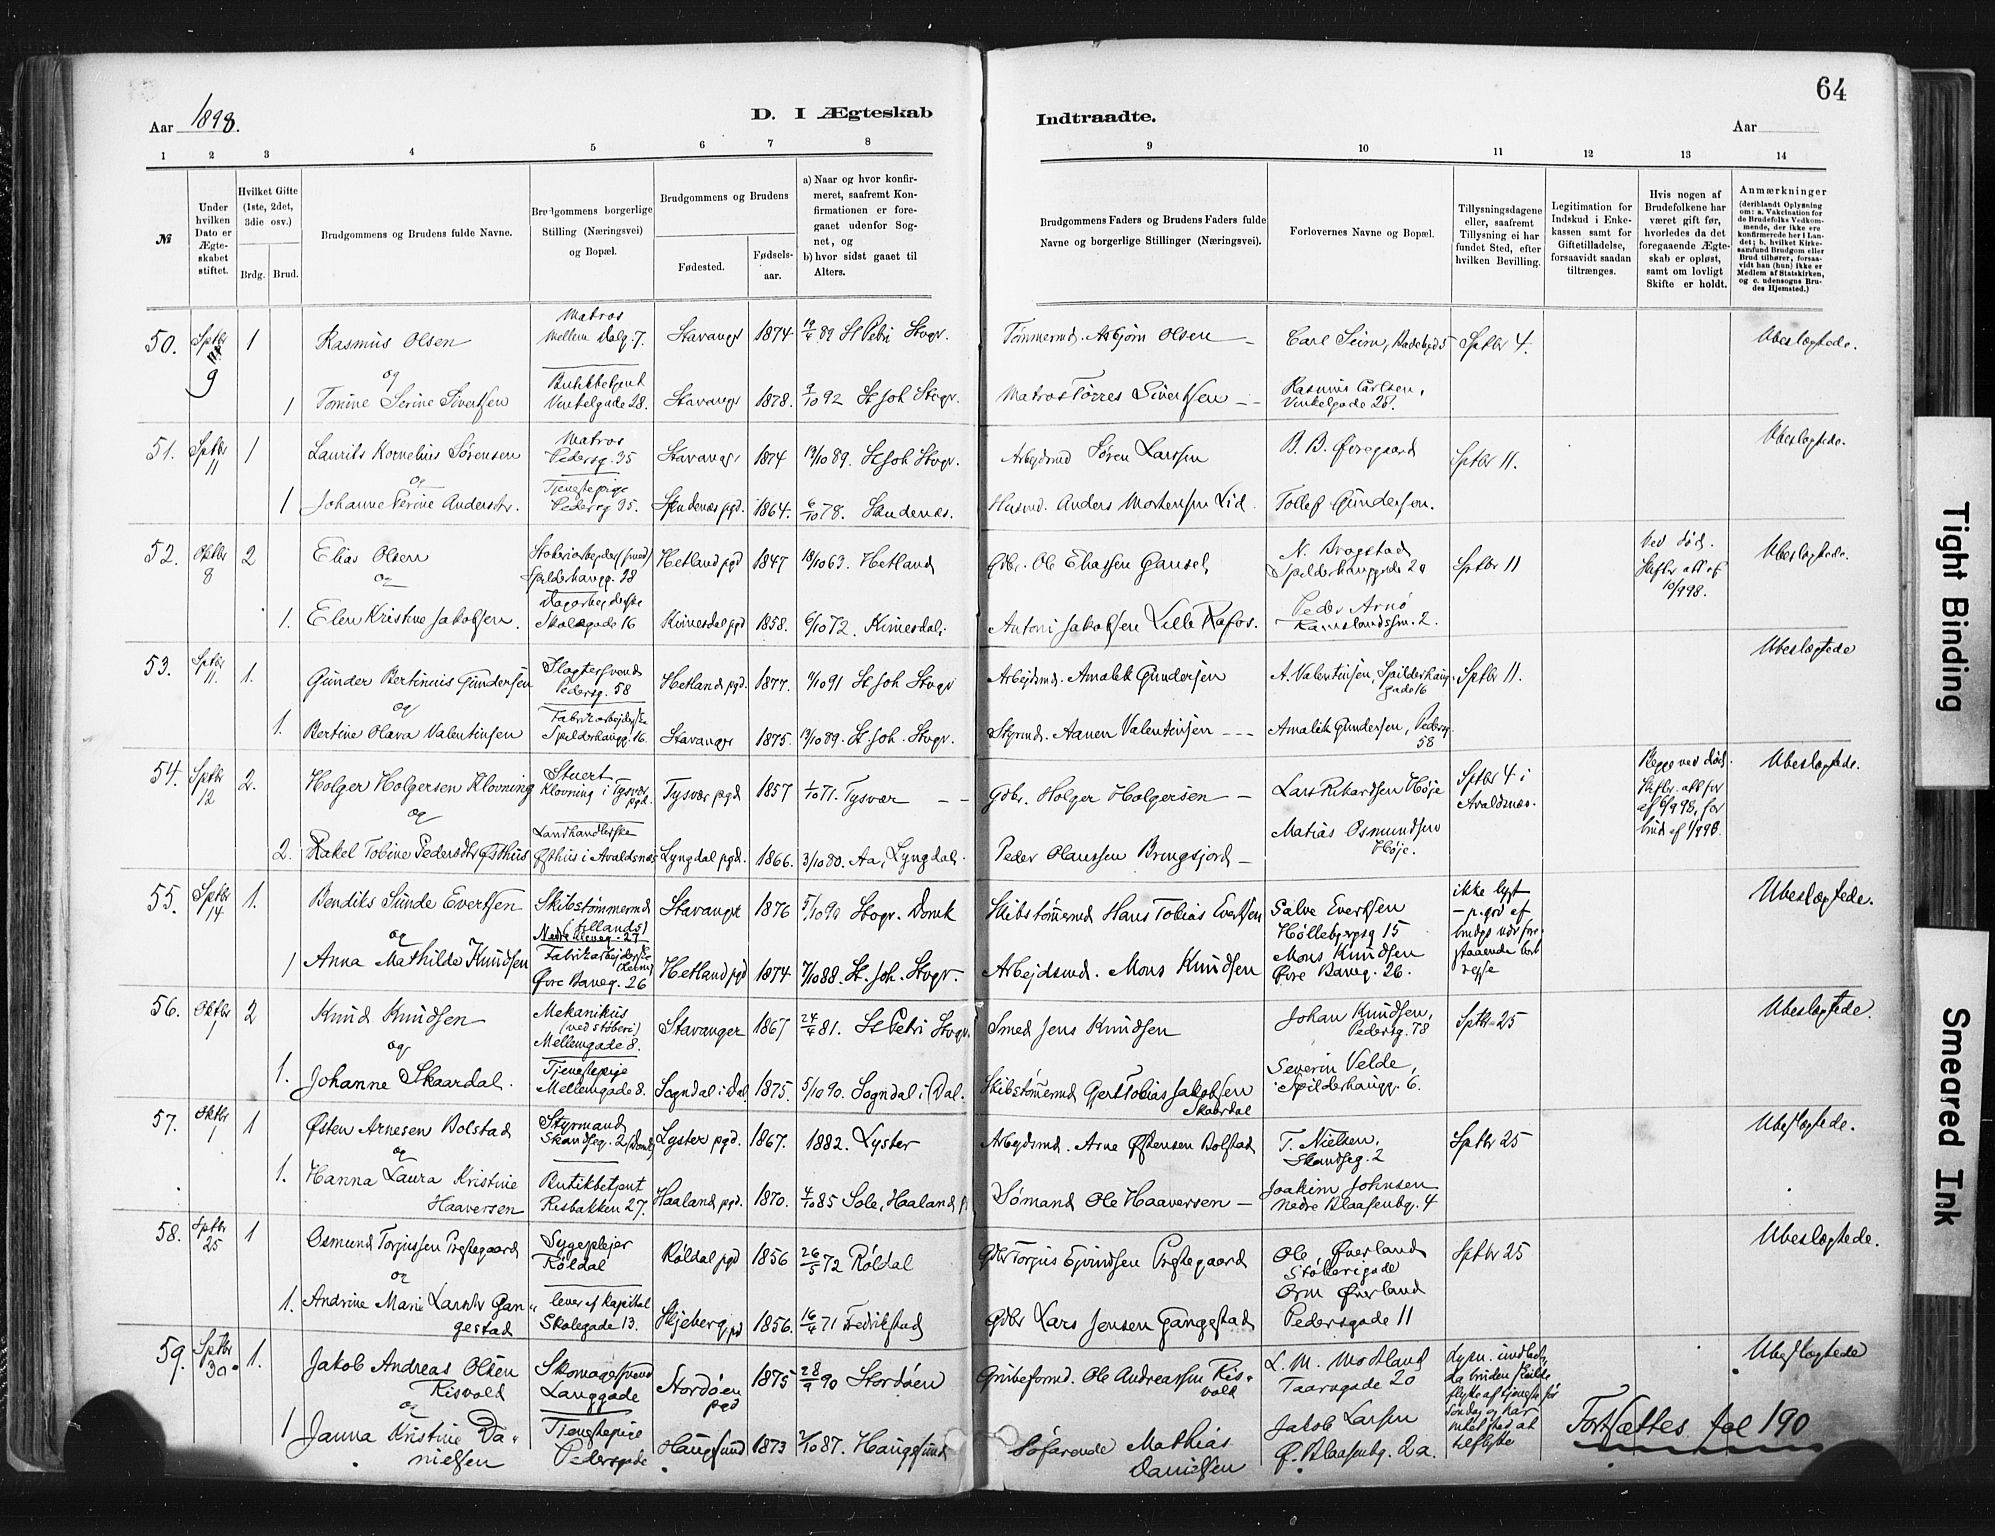 64
Aar 1898.
D. I Ægteskab
Indtraadte.
Aar
1 2 3 4 5 6 7 8 9 10 11 12 13 14
№
Under hvilken Dato er Ægteskabet stiftet.
Hvilket Gifte (1ste, 2det, 3die osv.)
Brdg. Brud.
Brudgommens og Brudens fulde Navne.
Brudgommens borgerlige Stilling (Næringsvei) og Bopæl.
Brudgommens og Brudens
Fødested. Fødselsaar.
a) Naar og hvor konfirmeret, saafremt Konfirmationen er foregaaet udenfor Sognet, og
b) hvor sidst gaaet til Alters.
Brudgommens Faders og Brudens Faders fulde Navne og borgerlige Stillinger (Næringsvei).
Forlovernes Navne og Bopæl.
Tillysningsdagene eller, saafremt Tillysning ei har fundet Sted, efter hvilken Bevilling.
Legitimation for Indskud i Enkekassen samt for Giftetilladelse, forsaavidt saadan tiltrænges.
Hvis nogen af Brudefolkene har været gift før, hvorledes da det foregaaende Ægteskab er opløst, samt om lovligt Skifte er holdt.
Anmærkninger (deriblandt Oplysning om: a. Vakcination for de Brudefolks Vedkommende, der ikke ere konfirmerede her i Landet; b. hvilket Kirkesamfund Brudgom eller Brud tilhører, forsaavidt han (hun) ikke er Medlem af Statskirken, og c. udensogns Brudes Hjemsted.)
50. Sptbr 9 1 Rasmus Olsen Matros Mellem Dalg. 7. Stavanger 1874 19/4 89 St Petri Stvgr. Tømmermd. Asbjørn Olsen Carl Seim, Sptbr 4. Ubeslægtede.
og
1 Tomine Serine Sivertsen Butikbetjent Vinkelgade 28. Stavanger 1878. 9/10 92 St Joh Stvgr. Matros Tørres Sivertsen Rasmus Carlsen, Vinkelgade 28.
51. Sptbr 11 1 Laurits Kornelius Sørensen Matros Pedersg. 35 Stavanger 1874 13/10 89. St Joh Stvgr. Arbejdsmd Søren Larssen B. B. Øvregaard Sptbr 11. Ubeslægtede.
og
1 Johanne Serine Andersdtr. Tjenestepige Pedersg 35. 1864. 6/10 78. Sandenæs. Husmd. Anders Mortensen Lid Tollef Gundersen.
52. Oktbr 8 2 Elias Olsen Støberiarbejder (smed) Spilderhaugg. 28 Hetland pgd 1847 18/10 63 Hetland Gdbr. Ole Eliassen Gausel N. Bragstad Spilderhauggade 2a Sptbr 11 Ved død. Skiftebr. att af 10/9 98. Ubeslægtede.
og
1. Elen Kristine Jakobsen. Dagarbejderske Skolegade 16 Kvinesdal pgd 1858. 6/10 72. Kvinesdal. Antoni Jakobsen Lille Rafos. Peder Arnø 2.
53. Sptbr 11. 1. Gunder Bertinius Gundersen Slagtersvend Pedersg. 58 Hetland pgd. 1877. 11/10 91 St Joh Stvgr Arbejdsmd. Amalik Gundersen A. Valentinsen, Spilderhauggade 16 Sptbr 11. Ubeslægtede
og
1. Bertine Olava Valentinsen Fabrikarbejderske Spilderhaugg. 16. Stavanger 1875. 13/10 89. St Joh. Stvgr. Styrmd. Aanen Valentinsen Amalik Gundersen, Pedersg. 58
54. Sptbr 12 2. Holger Holgersen Klovning Stuert Klovning i Tysvær pgd. Tysvær pgd 1857 1/10 71. Tysvær Gdbr. Holger Holgersen Lars Rikardsen Høje Sptbr 4 i Avaldsnæs. Begge ved død. Skiftebr. att for af 6/9 98, for brud af 1/9 98. Ubeslægtede.
og
2. Rakel Tobine Pedersdtr Østhus Landhandlerske Østhus i Avaldsnæs Lyngdal pgd. 1866. 3/10 80. Aa, Lyngdal. Peder Olaussen Bringsjord Matias Osmundsen Høje.
55. Sptbr 14 1. Bendiks Sunde Evertsen Skibstømmermd Nedre 27 Stavanger 1876 5/10 90 Stvgr. Domk Skibstømermd Hans Tobias Evertsen Salve Evertsen Høllebergsg 15 ikke lyst p. grd af brudgs nær forestaaende bortrejse Ubeslægtede.
og
1 Anna Mathilde Knudsen Fabrikarbejderske Øvre Baneg. 26 Hetland pgd 1874. 7/10 88. St. Joh. Stvgr. Arbejdsmd. Mons Knudsen Mons Knudsen Øvre Baneg. 26.
56. Oktbr 1 2 Knud Knudsen Mekanikus (ved støberi) Mellemgade 8. Stavanger 1867 24/4 81. St Petri Stvgr. Smed Jens Knudsen Johan Knudsen, Pedersg. 78 Sptbr 25 Ubeslægtede.
og
1. Johanne Skaardal. Tjenestepige Mellemgade 8. Sogndal i Dal. 1875. 5/10 90. Sogndal i Dal. Skibstømermd Gjert Tobias Jakobsen Skaardal Severin Velde, Spilderhaugg. 6.
57. Oktbr 1 1 Østen Arnesen Bolstad Styrmand Skandseg. 2 (Domk) Lyster pgd. 1867. 1882. Lyster Arbejdsmd. Arne Østensen Bolstad T. Nielsen, Skandseg. 2 Sptbr 25 Ubeslægtede.
og
1. Hanna Laura Kristine Haaversen Butikbetjent Risbakken 27. Haaland pgd. 1870. 4/10 85 Sole, Haaland Sømand Ole Haaversen Joakim Johnsen Nedre Blaasenbg. 4
58. Sptbr 25 1 Osmund Torjussen Prestegaard Sygeplejer Røldal Røldal pgd 1856 26/5 72 Røldal Gdbr Torjus Ejvindsen Prestegaard Ole Øverland Støberigade Sptbr 25 Ubeslægtede.
og
1. Andrine Marie Larsdtr Gangestad lever af kapital Skolegade 13. Skjeberg pd 1856. 16/4 71 Fredrikstad Gdbr Lars Jensen Gangestad Orm Øverland Pedersgade 11
59. Sptbr 30 1. Jakob Andreas Olsen Risvold Skomagersvend Langgade Stordøen pgd 1875 28/9 90 Stordøen Grubeformd. Ole Andreassen Risvold L. M. Motland Taarngade 20 Ubeslægtede
og
1 Janna Kristine Danielsen Tjenestepige Pedersgade Haugesund 1873 2/10 87. Haugesund Søfarende Mathias Danielsen Jakob Larsen Ø. Blaasenbg. 2a.
Fortsættes fol 190
Tight Binding
Smeared Ink